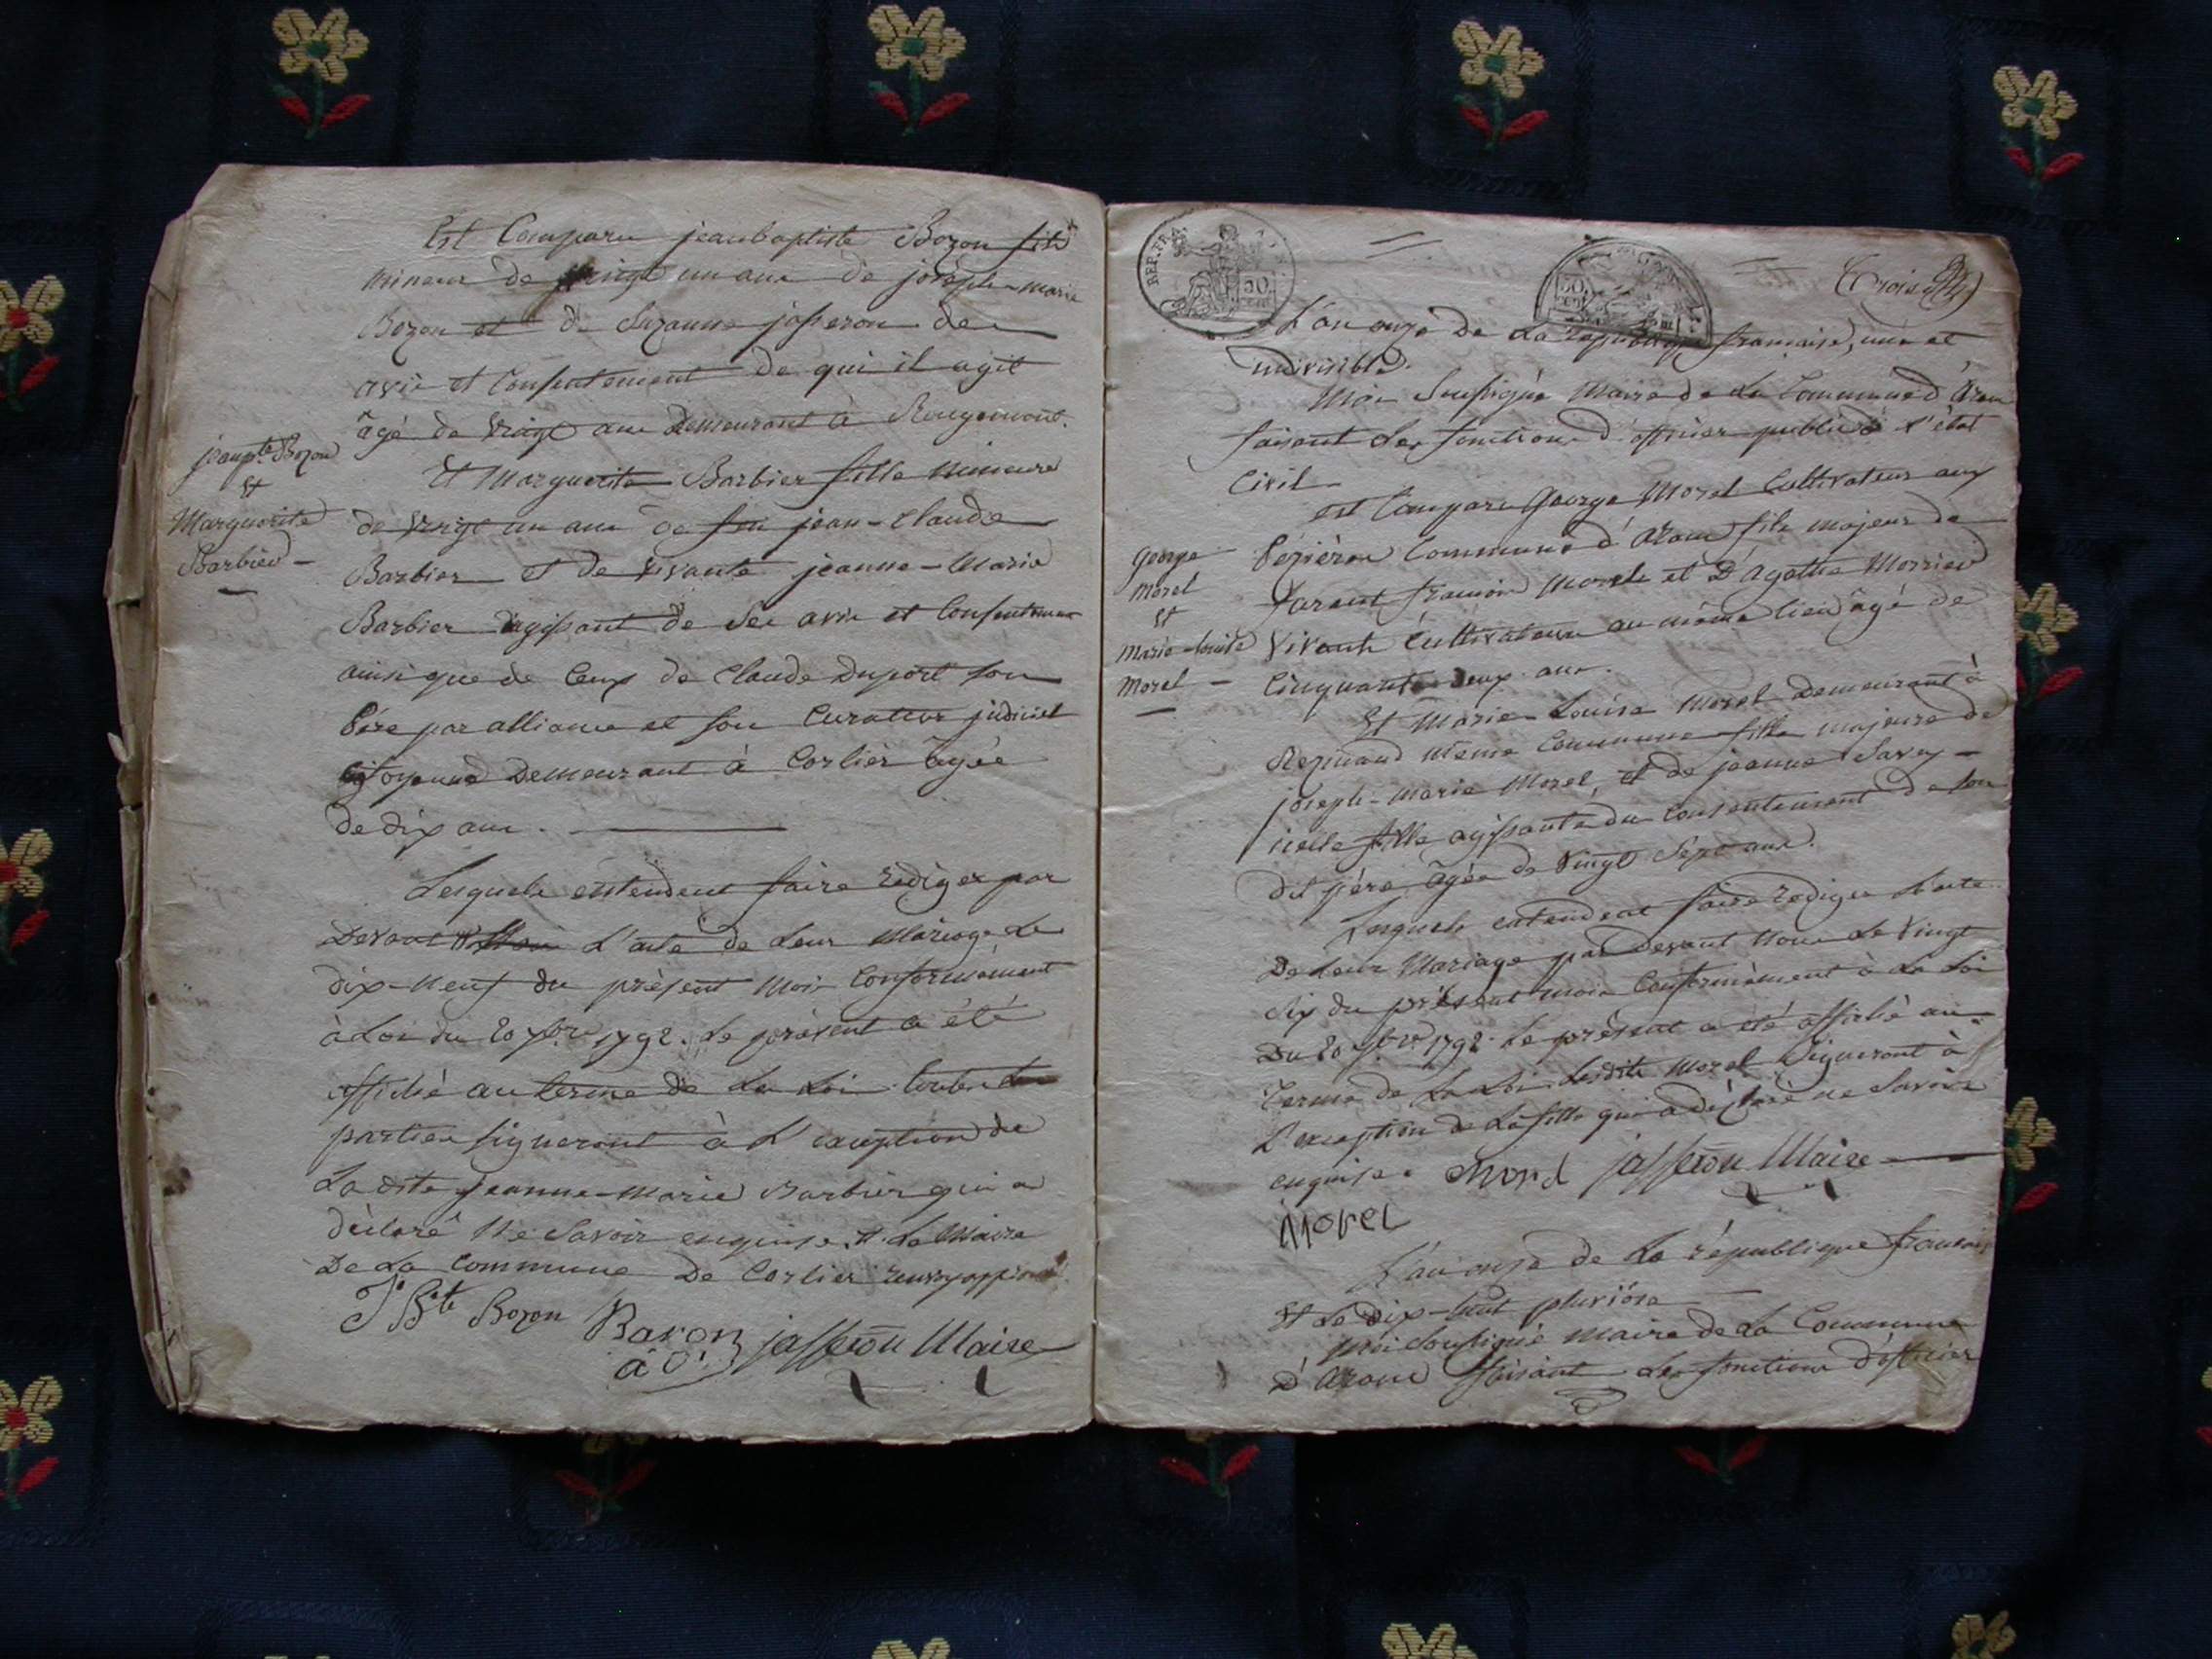 Est Comparu jeanbaptiste Bozon fils
mineur de vingt un ans de joseph-marie
Bozon et de Suzanne josseron de
avis et Consentement de qui il agit
âgé de Vingt ans Demeurant à Rougemont.
jean bte Bozon
et
Marguerite
Barbier -
Et Marguerite Barbier fille mineure
de Vingt un ans de feu jean-Claude
Barbier et de vivante jeanne-Marie
Barbier agissant de Ses avis et Consentement
ainsi que de Ceux de Claude Duport son
Pére par alliance et son Curateur judiciel
Citoyenne Demeurant à Corlier âgée
de dix ans.
Lesquels entendent faire rediger par
Devant L'acte de Leur Mariage Le
dix-neuf du présent mois Conformément
à Loi du 20 7bre 1792. Le présent a été
affiché au terme de La Loi toutes Les
parties signeront à L'exception de
La dite Jeanne-Marie Barbier qui a
déclaré Ne Savoir enquise. Le Maire
De La Commune De Corlier
J Bte Bozon Baron josseron Maire
REP. FRA. 50 CEN
50 CEN
L'an onze de La republique française, une et
indivisible.
Moi Soussigné Maire de La Commune d'Aranc
faisant Les fonctions d'officier public de l'état
Civil
est Comparu George Morel Cultivateur aux
George
Morel
et
Marie-Louise
Morel -
Péziéres Commune d'Aranc fils majeur de
françois Morel et D'Agathe
Vivants Cultivateurs au même lieu âgé de
Cinquante deux ans.
Et Marie-Louise Morel Demeurant à
Resinand même Commune fille majeure de
joseph-Marie Morel, et de jeanne Savey -
icelle fille agissante du Consentement de son
dit père, âgée de Vingt Sept ans.
Lesquels entendent faire rediger L'acte
De Leur Mariage par Devant Nous Le Vingt
Six du présent mois Conformément à La Loi
Du 20 7bre 1792. Le présent a été affiché au
Terme de La Loi. Lesdits Morel Signeront à
L'exception de La fille qui a déclaré ne Savoir
enquise. Morel josseron Maire
Morel
L'an onze de La république française
Et Le dix-huit pluviôse
Moi Soussigné Maire de La Commune
D'Aranc faisant Les fonctions d'officier